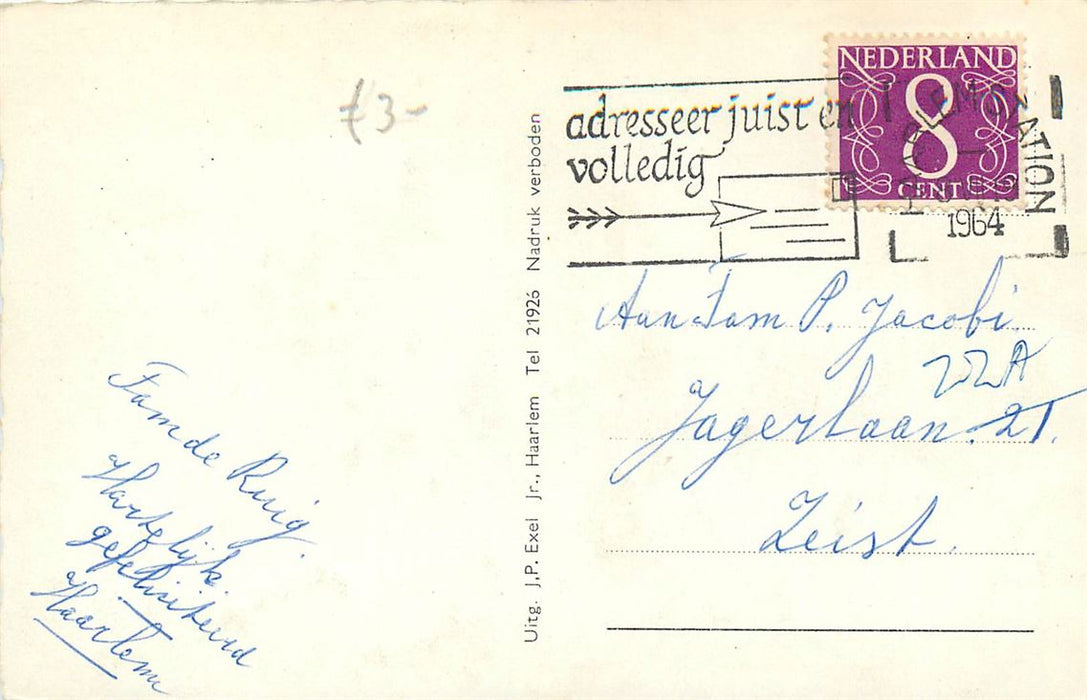 f3-
adresseer juist en
volledig
NEDERLAND
8
CENT
HAARLEM STATION
1964
Aan Fam P. Jacobi
22A
Jagerlaan. 21.
Zeist.
Fam de Ruig.
Hartelijk
gefeliciteerd
Haarlem
Uitg. J.P. Exel Jr., Haarlem Tel 21926 Nadruk verboden